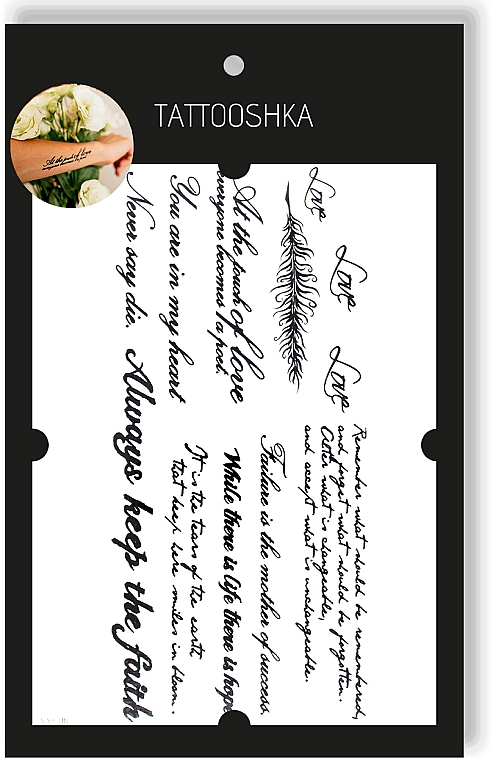 TATTOOSHKA
At the touch of love
everyone becomes a poet.
Love
Love
Love
Remember what should be remembered,
and forget what should be forgotten.
Alter what is changeable,
and accept what is unchangeable.
At the touch of love
everyone becomes a poet.
Failure is the mother of success.
While there is life there is hope
You are in my heart
It is the tears of the earth
that keep here smiles in bloom.
Never say die.
Always keep the faith